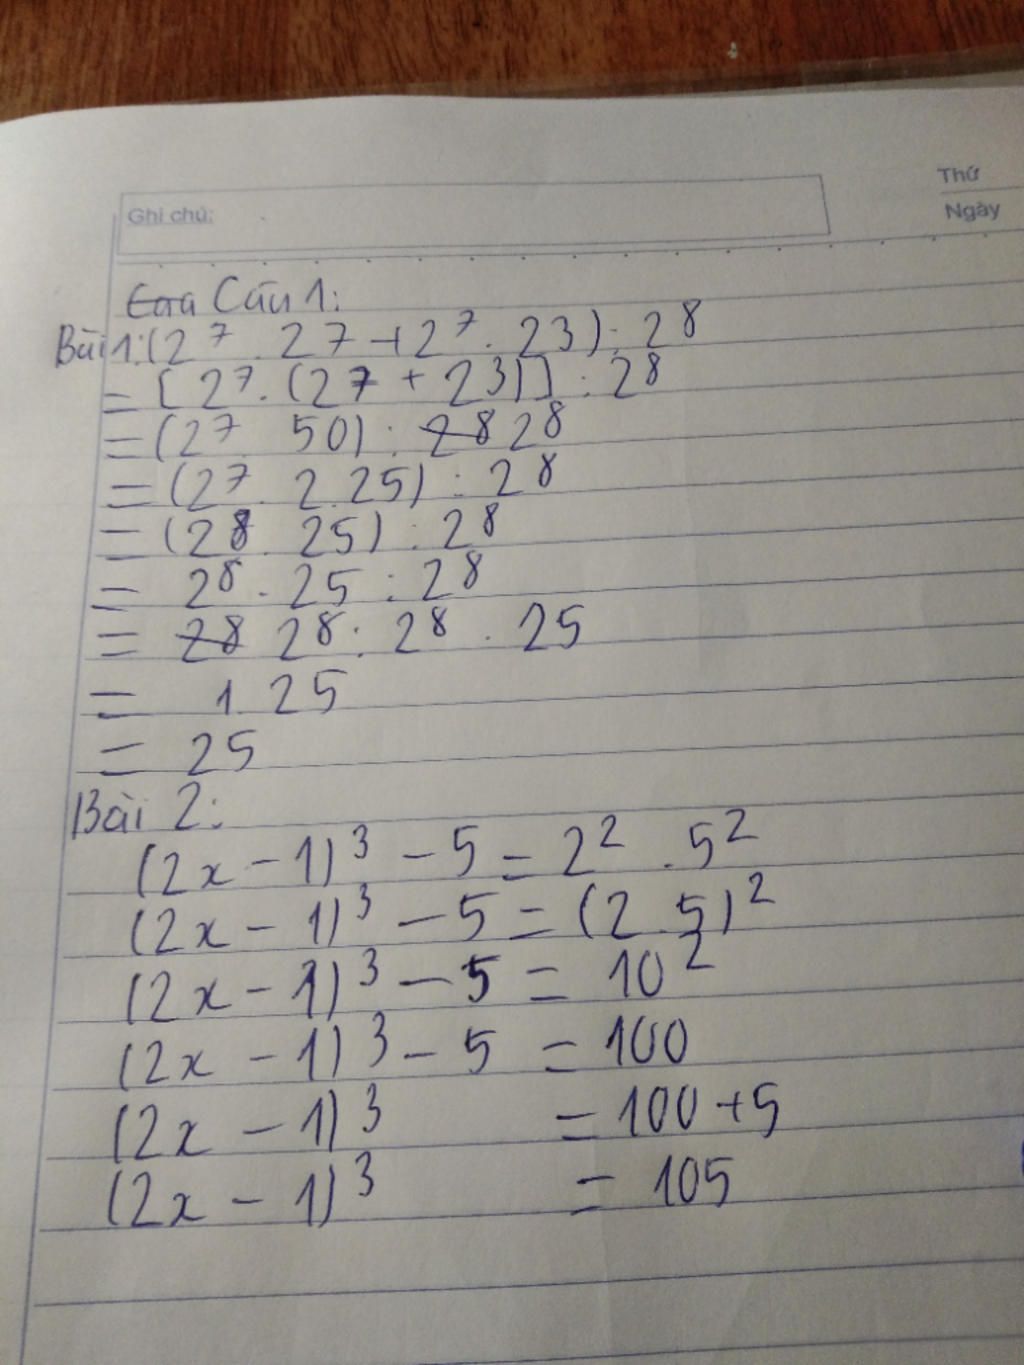 Thứ
Ghi chú:
Ngày
Câu 1:
Bài 1: (2⁷ . 27 + 2⁷ . 23) : 2⁸
= [2⁷. (27 + 23)] : 2⁸
= (2⁷ 50) : 28 2⁸
= (2⁷. 2.25) : 2⁸
= (2⁸. 25) : 2⁸
= 2⁸ . 25 : 2⁸
= 28 2⁸ : 2⁸ . 25
= 1.25
= 25
Bài 2:
(2x - 1)³ - 5 = 2² . 5²
(2x - 1)³ - 5 = (2.5)²
(2x - 1)³ - 5 = 10²
(2x - 1)³ - 5 = 100
(2x - 1)³ = 100 + 5
(2x - 1)³ = 105